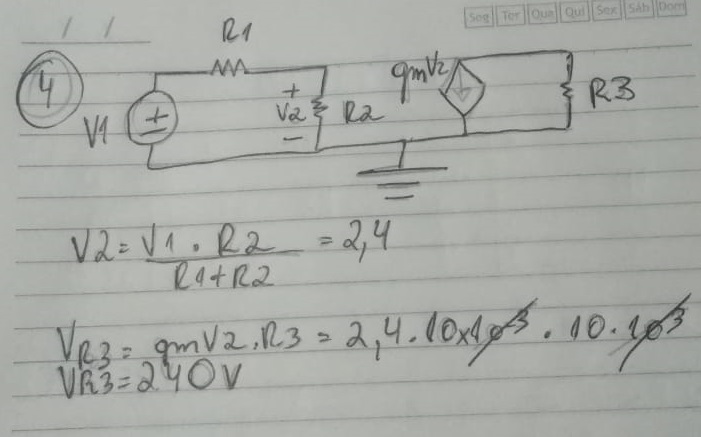 Seg Ter Qua Qui Sex Sáb Dom
/ /
4
R1
V1
+
+
V2
-
R2
gmV2
R3
V2 = V1 . R2 / R1+R2 = 2,4
VR3 = gmV2.R3 = 2,4.10x10^-3 . 10.10^3
VR3 = 240V